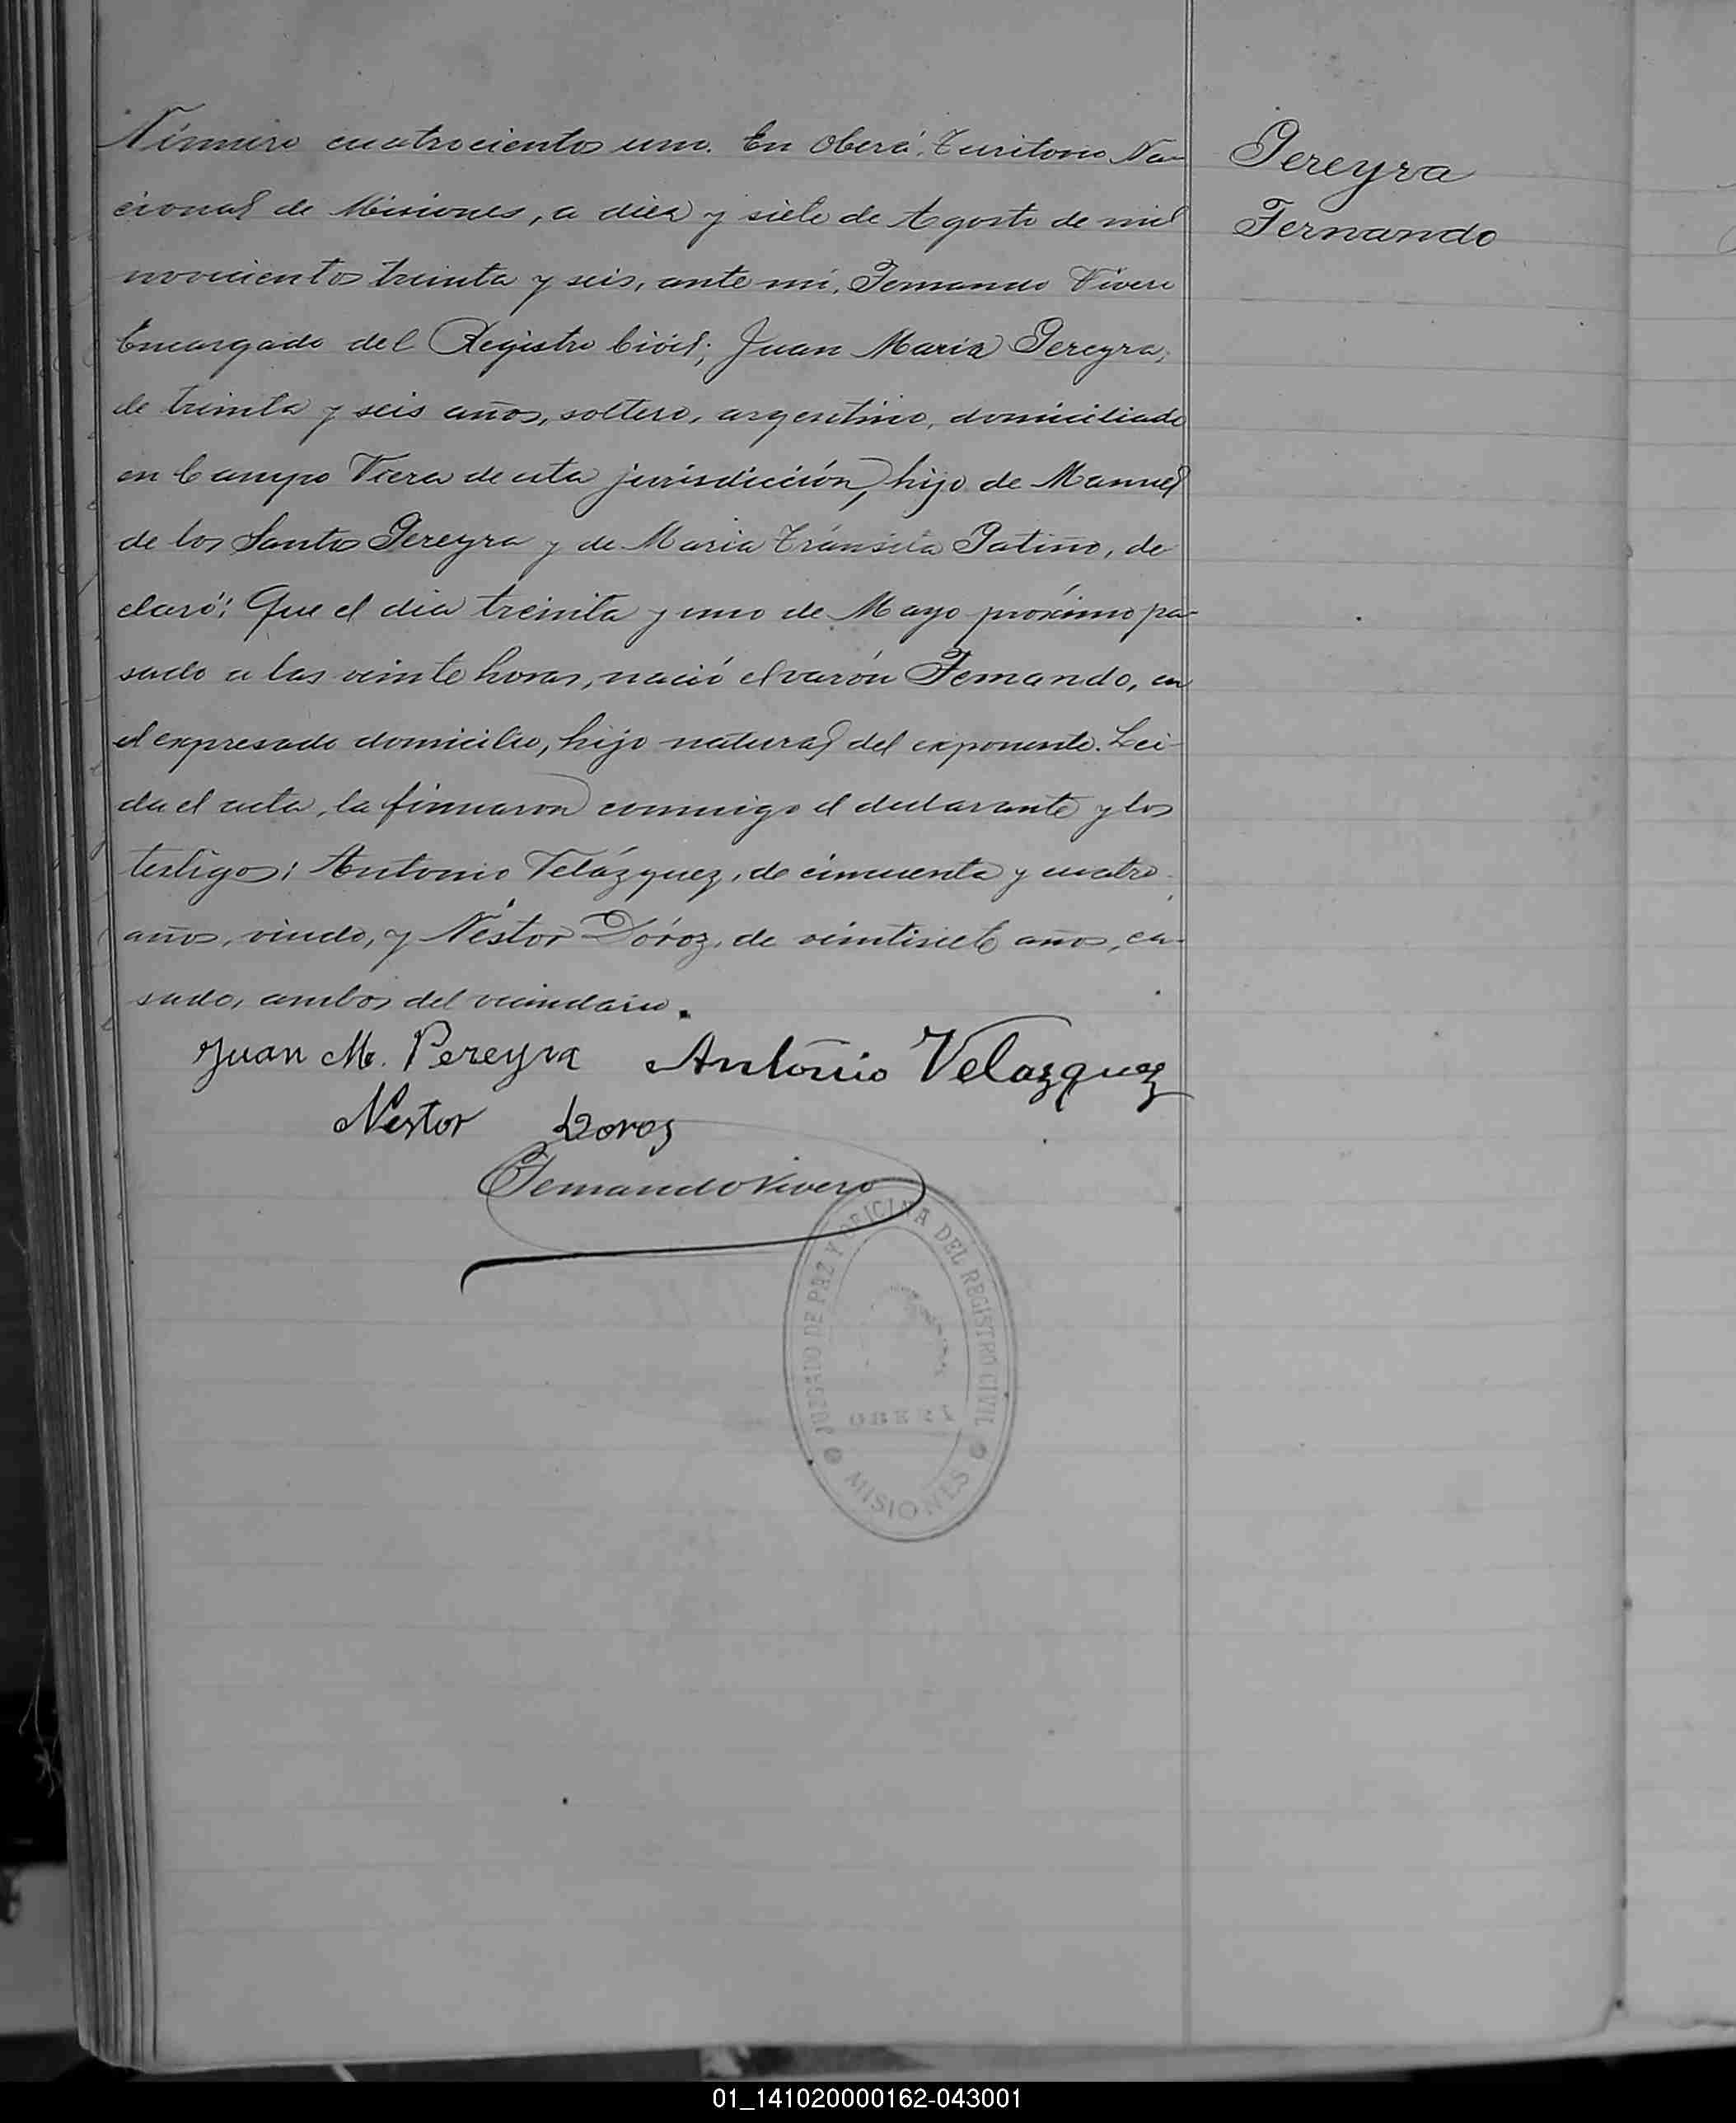 Número cuatrocientos uno. En Oberá, Territorio Na-
cional de Misiones, a diez y siete de Agosto de mil
novecientos treinta y seis, ante mí, Fernando Vivero
Encargado del Registro Civil; Juan María Pereyra,
de treinta y seis años, soltero, argentino, domiciliado
en Campo Viera de esta jurisdicción, hijo de Manuel
de los Santos Pereyra y de María Tránsita Patiño, de-
claró: Que el día treinta y uno de Mayo próximo pa-
sado a las veinte horas, nació el varón Fernando, en
el expresado domicilio, hijo natural del exponente. Leí-
da el acta, la firmaron conmigo el declarante y los
testigos: Antonio Velázquez, de cincuenta y cuatro
años, viudo, y Néstor Dóroz, de veintisiete años, ca-
sado, ambos del vecindario.
Pereyra
Fernando
Juan M. Pereyra Antonio Velazquez
Nestor Doroz
Fernando Vivero
JUZGADO DE PAZ Y OFICINA DEL REGISTRO CIVIL
MISIONES
01_141020000162-043001